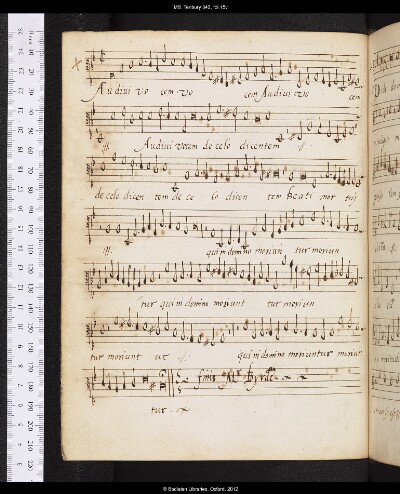 MS. Tenbury 340, fol.15v
Audivi vo cem vo cem Audivi vo cem
Audivi vocem de celo dicentem
de celo dicen tem de ce lo dicen tem beati mor tui
qui in domino moriun tur moriun
tur qui in domino moriunt tur moriun
tur moriunt ur qui in domino moriuntur moriun
finis Mr Byrde
tur
© Bodleian Libraries, Oxford, 2012